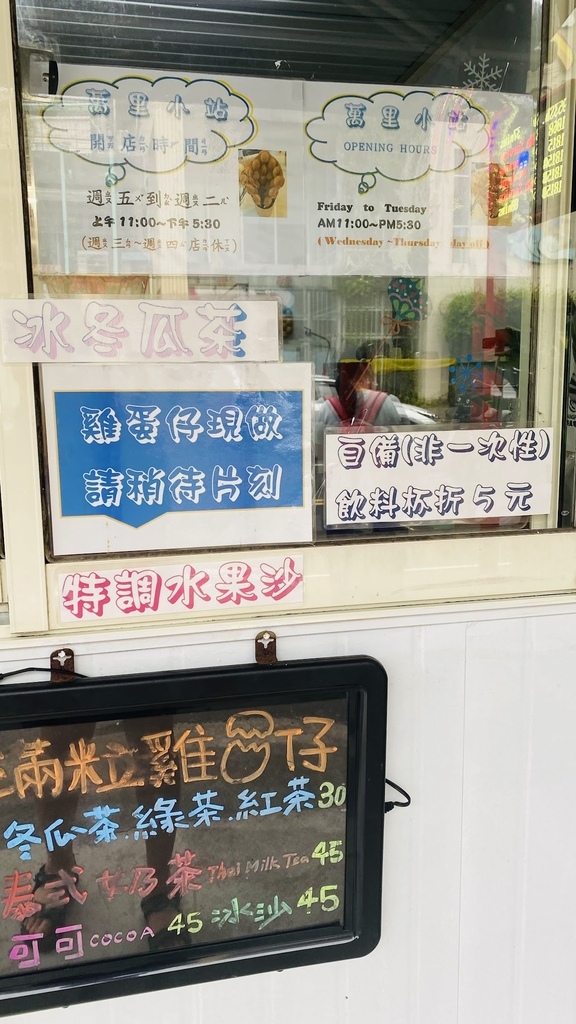 萬里小站
開店時間
週五到週二
上午11:00~下午5:30
(週三~週四店休)
萬里小站
OPENING HOURS
Friday to Tuesday
AM11:00~PM5:30
(Wednesday ~Thursday day off)
冰冬瓜茶
雞蛋仔現做
請稍待片刻
自備(非一次性)
飲料杯折5元
特調水果沙
滿粒雞蛋仔
冬瓜茶.綠茶.紅茶30
泰式奶茶Thai Milk Tea 45
可可COCOA 45 冰沙 45